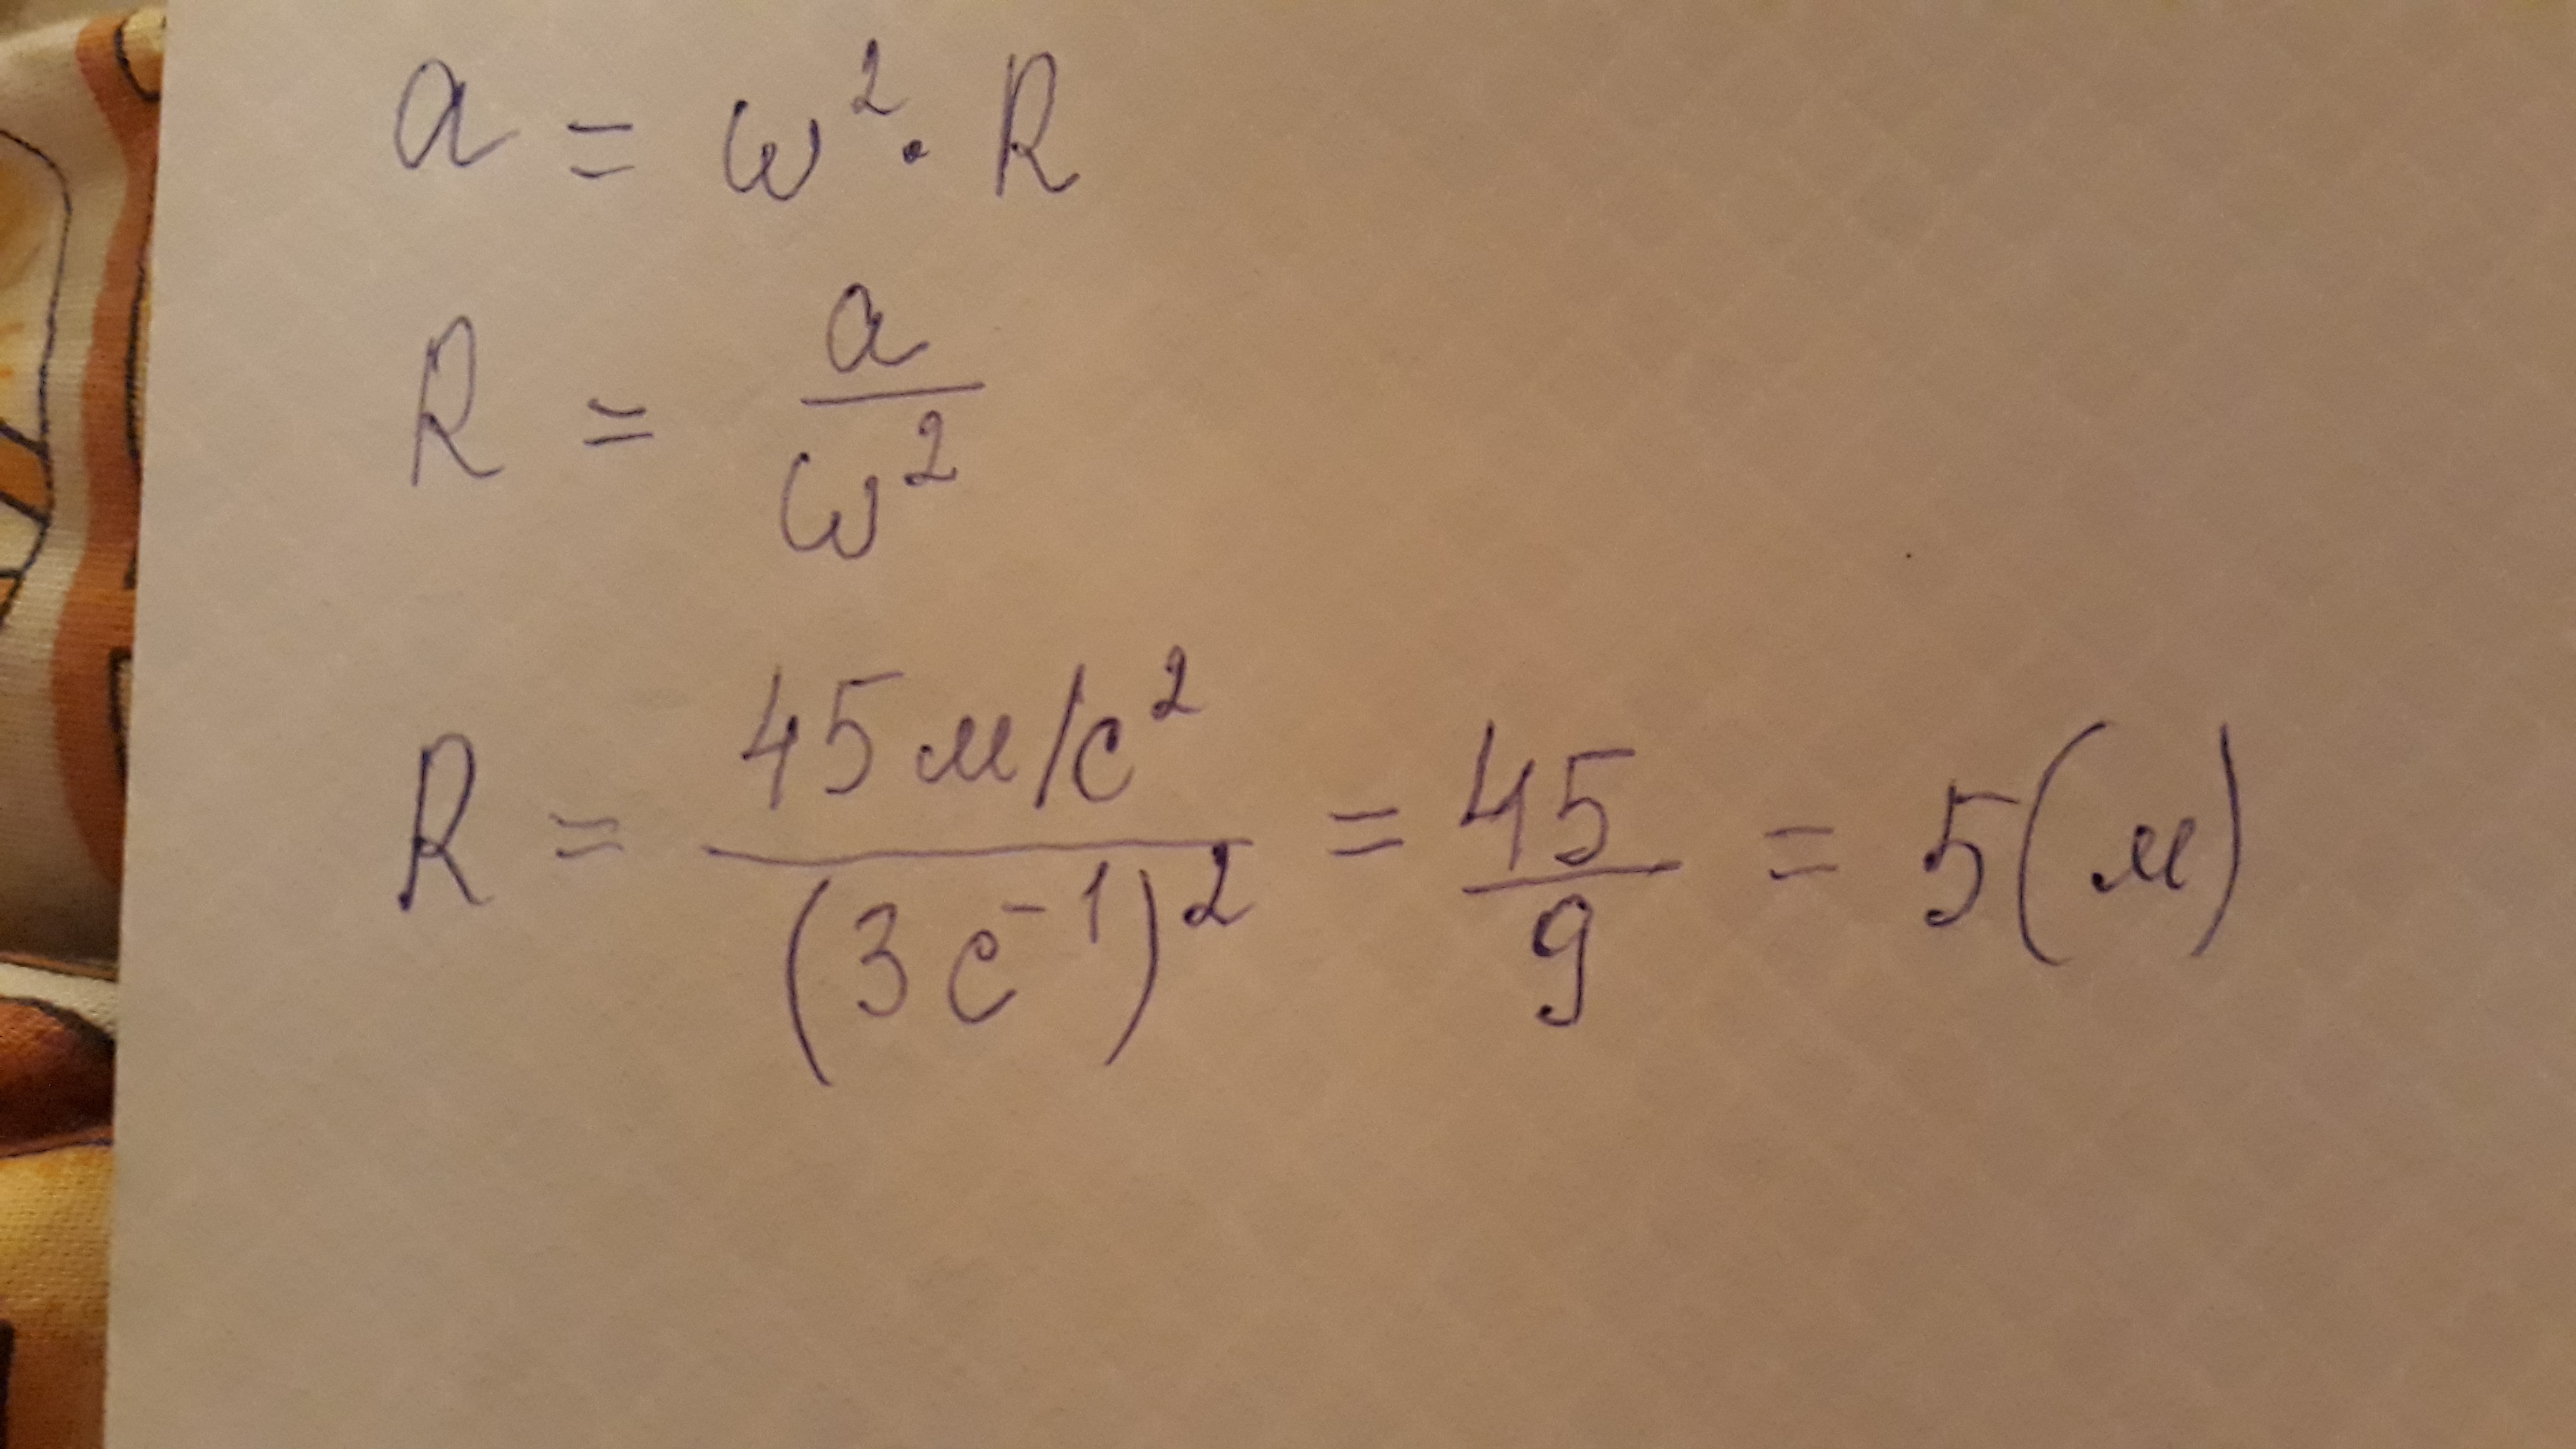 a = ω² · R
R = a / ω²
R = 45 м/с² / (3 с⁻¹)² = 45 / 9 = 5 (м)